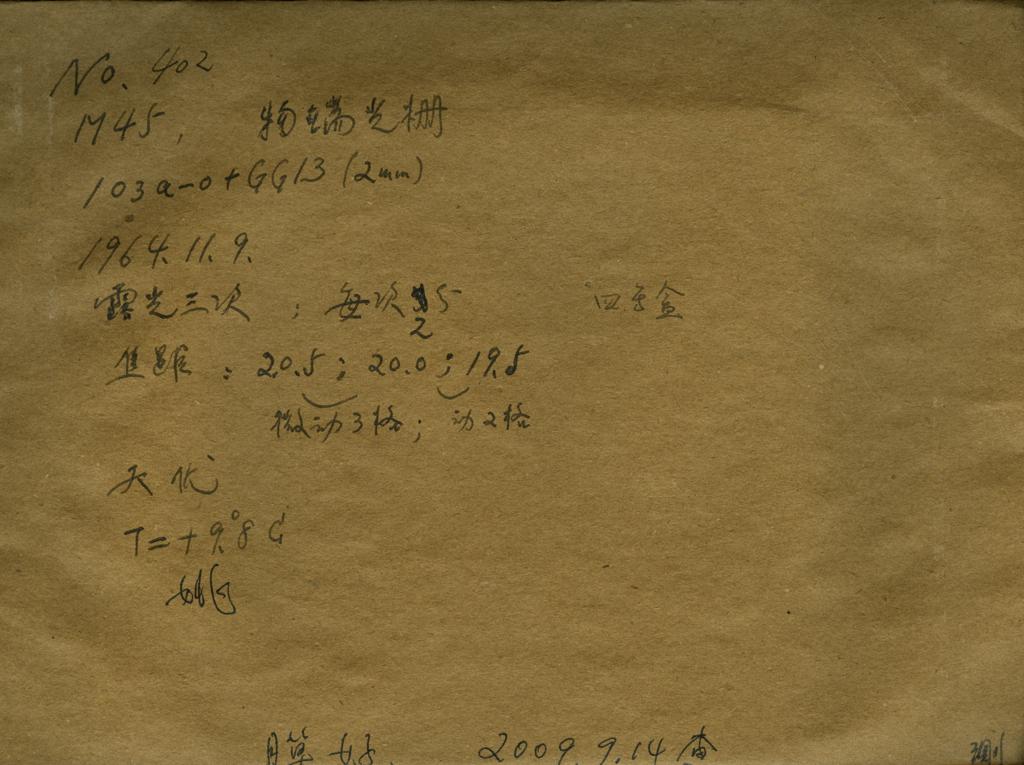 No. 402
M45, 物端光栅
103a-o+GG13 (2mm)
1964. 11. 9.
露光三次 : 每次 5
2
焦距 : 20.5 ; 20.0 ; 19.5
微动3格; 动2格
天优
T=+9.°8 C
姚
膜 好. 2009. 9. 14 查
测